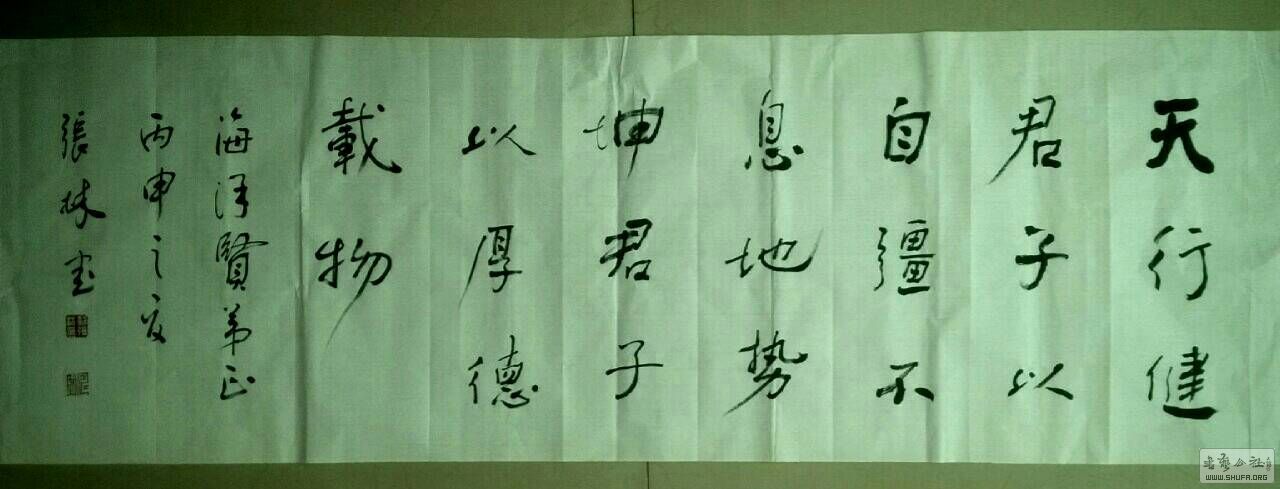 天行健
君子以
自彊不
息地势
坤君子
以厚德
載物
海洋賢弟正
丙申之夏
張林书
WWW.SHUFA.ORG